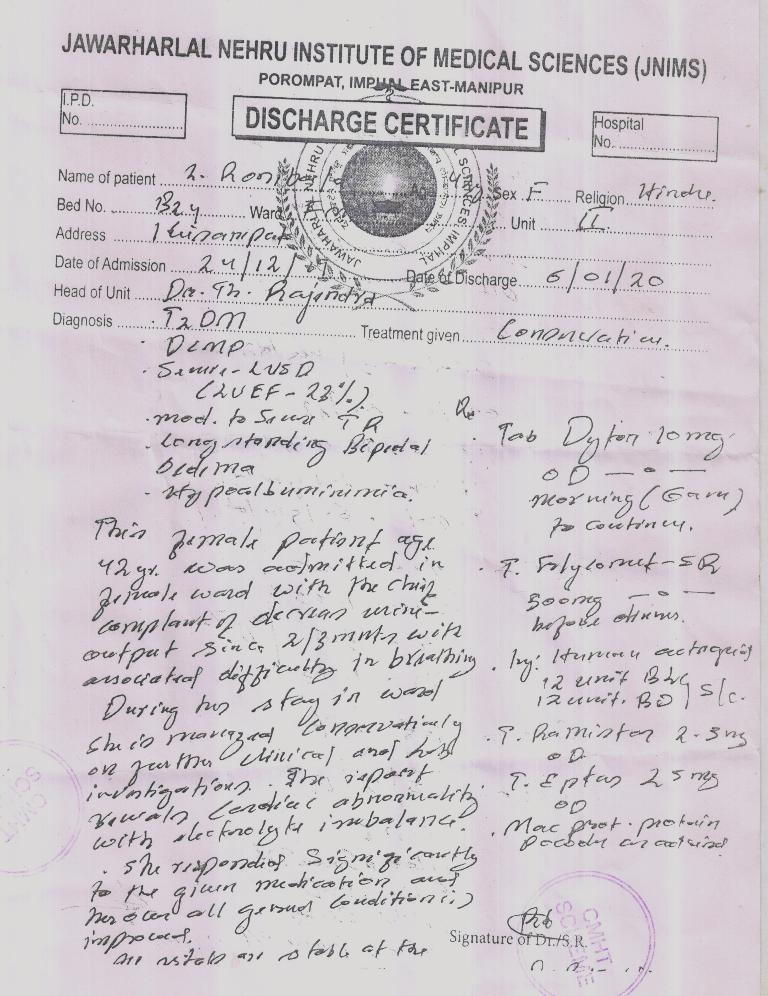 JAWARHARLAL NEHRU INSTITUTE OF MEDICAL SCIENCES (JNIMS)
POROMPAT, IMPHAL EAST-MANIPUR
I.P.D.
No.
DISCHARGE CERTIFICATE
Hospital
No.
Name of patient Sex F Religion Hindu.
Bed No. B24 Ward Unit II
Address
Date of Admission 24/12/ Date of Discharge 6/01/20
Head of Unit Dr. Th. Rajendra
Diagnosis . T2DM Treatment given Conservative.
. DCMP
. Severe-LVSD
(LVEF-23%)
. mod. to Severe TR
. Long standing Bipedal
Oedema
. Hypoalbuminimia.
This female patient age
42 yr. was admitted in
female ward with the chief
complant of decreas urine
output since 2/3 mnts with
associated difficulty in breathing
During her stay in ward
she is managed conservatively
on further clinical and lab
investigations. The report
reveals cardiac abnormality
with electrolyte imbalance.
. She responded significantly
to the given medication and
her over all general condition is
improved.
vitals are stable at the
Rx
. Tab Dytor 10mg
OD
morning (6am)
to continue.
. T.
500mg
before dinner.
. Inj. Human actrapid
12 unit
12 unit. BD S/C.
. T. Ramistar 2.5mg
OD
T. Eptus 25mg
OD
. Mac prot. protein
Signature of Dr./S.R.
CMHT
CMHT